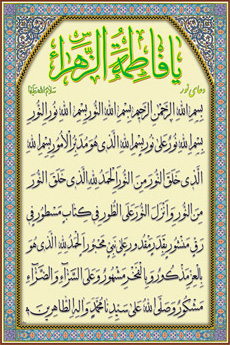 يا فاطمة الزهراء
دعای نور
سلام الله عليها
بِسْمِ اللهِ الرَّحْمٰنِ الرَّحيمِ بِسْمِ اللهِ النُّورِ بِسْمِ اللهِ نُورِ النُّورِ
بِسْمِ اللهِ نُورٌ عَلى نُورٍ بِسْمِ اللهِ الَّذى هُوَ مُدَبِّرُ الْاُمُورِ بِسْمِ اللهِ
الَّذى خَلَقَ النُّورَ مِنَ النُّورِ اَلْحَمْدُ لِلّهِ الَّذى خَلَقَ النُّورَ
مِنَ النُّورِ وَاَنْزَلَ النُّورَ عَلَى الطُّورِ فى كِتابٍ مَسْطُورٍ فى
رَقٍّ مَنْشُورٍ بِقَدَرٍ مَقْدُورٍ عَلى نَبِىٍّ مَحْبُورٍ اَلْحَمْدُ لِلّهِ الَّذى هُوَ
بِالْعِزِّ مَذْكُورٌ وَبِالْفَخْرِ مَشْهُورٌ وَعَلَى السَّرّاءِ وَالضَّرّاءِ
مَشْكُورٌ وَصَلَّى اللهُ عَلى سَيِّدِنا مُحَمَّدٍ وَالِهِ الطّاهِرينَ